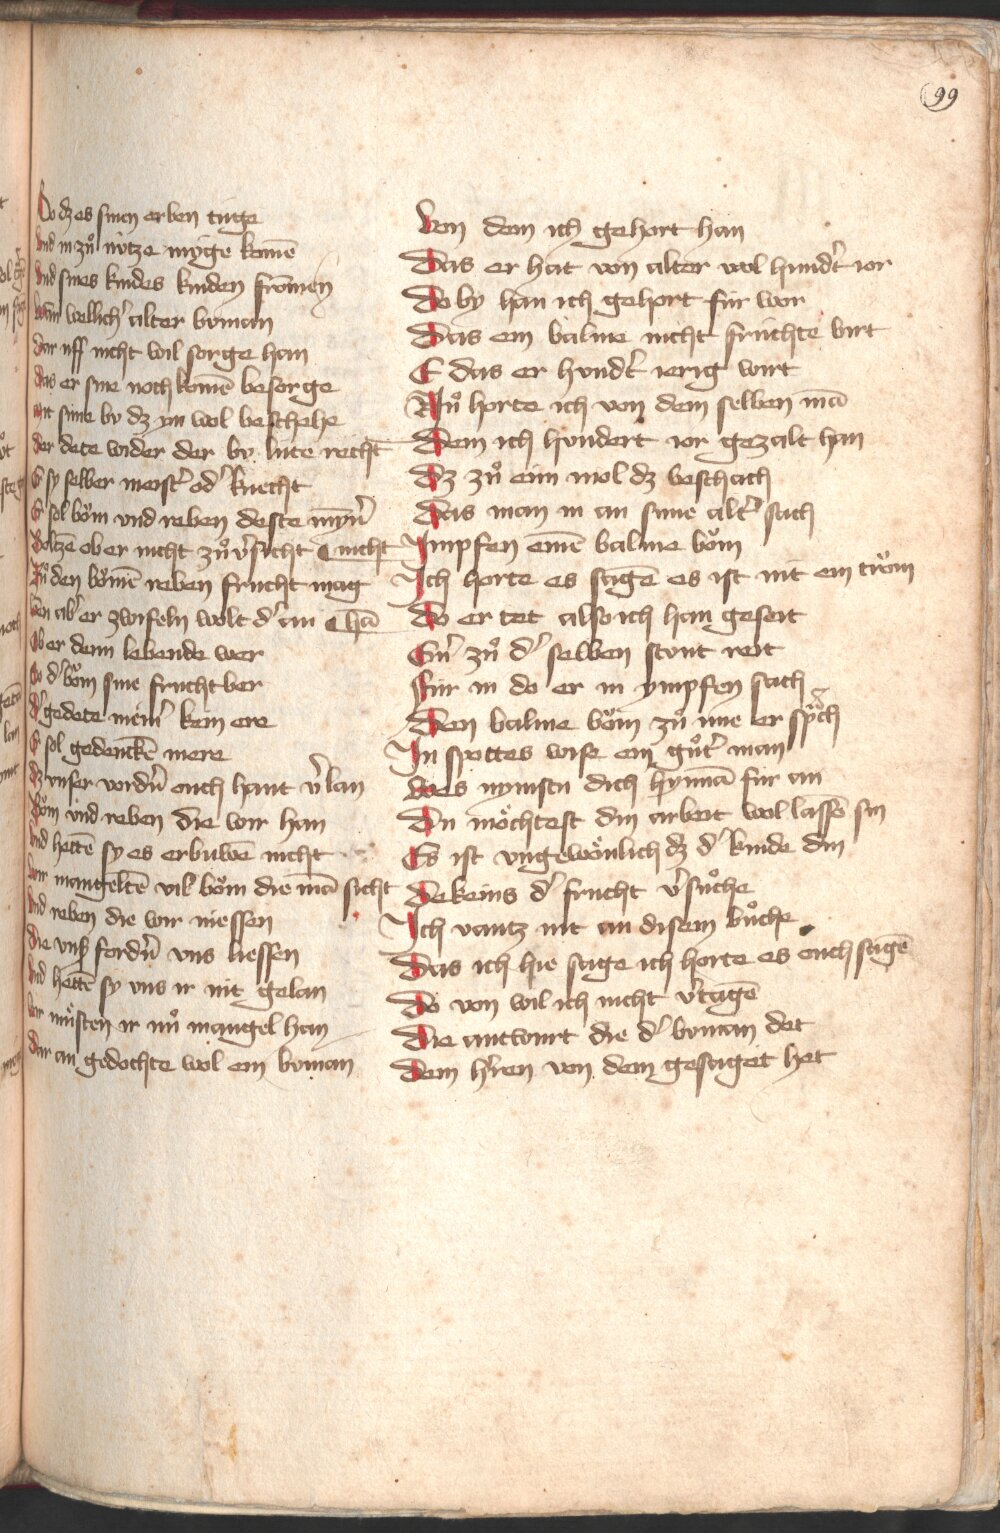 99
Do dz es sinen erben tuge
Vnd in zuͦ nútze múge komē
Vnd sines kindes kinden fromen
Wan wellich' alter buman
Dar uff nicht wil sorge han
Das er sine nochkomē besorge
Mit sime bu dz im wol beschehe
Der dete wider der bu lute recht
Er sy selber meist' od' knecht
Er sol boͮm vnd reben deste
Boltze ob er nicht zuͦ v'sicht nicht
Zuͦ den boͮmē reben frucht mag
Wen ab' er zwifeln wolt d' an hā
Ob er denn lebende wer
So d' boͮm sine frucht ber
D' gedete niem' kem ere
Er sol gedenckē mere
Dz vnser vord'n ouch hant v'lan
Boͮm vnd reben die wir han
Vnd hettē sy es erbuwē nicht
Wir mangeltē vil boͮm die mā sicht
Vnd reben die wir niessen
Die vns ford'n vns liessen
Vnd hettē sy vns ir nit gelan
Wir muͤsten ir nuͦ mangel han
Dar an gedochte wol ein buman
Von dem ich gehort han
Das er hat von alter wol hund't ior
Do by han ich gehort fúr wor
Das ein balme nicht frúchte birt
E das er hund't ierig wirt
Nuͦ horte ich von dem selben mā
Dem ich hundert ior gezalt han
Dz zuͦ eim mol dz beschach
Das man in an sime alt' sach
Impfen einē balme boͮm
Ich horte es sagē es ist nit ein troͮm
Do er tet also ich han geseit
Ein' zuͦ d' selben stont reit
Fúr in do er in ympfen sach
Den balme boͮm zuͦ ime er sprach
In spottes wise ein guͦt' man
Wes nymstu dich hynnā fúr an
Du moͤchtest din arbeit wol lassē sin
Es ist vngewoͤnlich dz d' kinde din
Dekeins d' frucht v'suͦche
Ich vantz nit an disem buͦche
Das ich hie sage ich horte es ouch sagē
Do von wil ich nicht v'tagē
Die antwurt die d' buman det
Dem h'ren von dem gesaget het